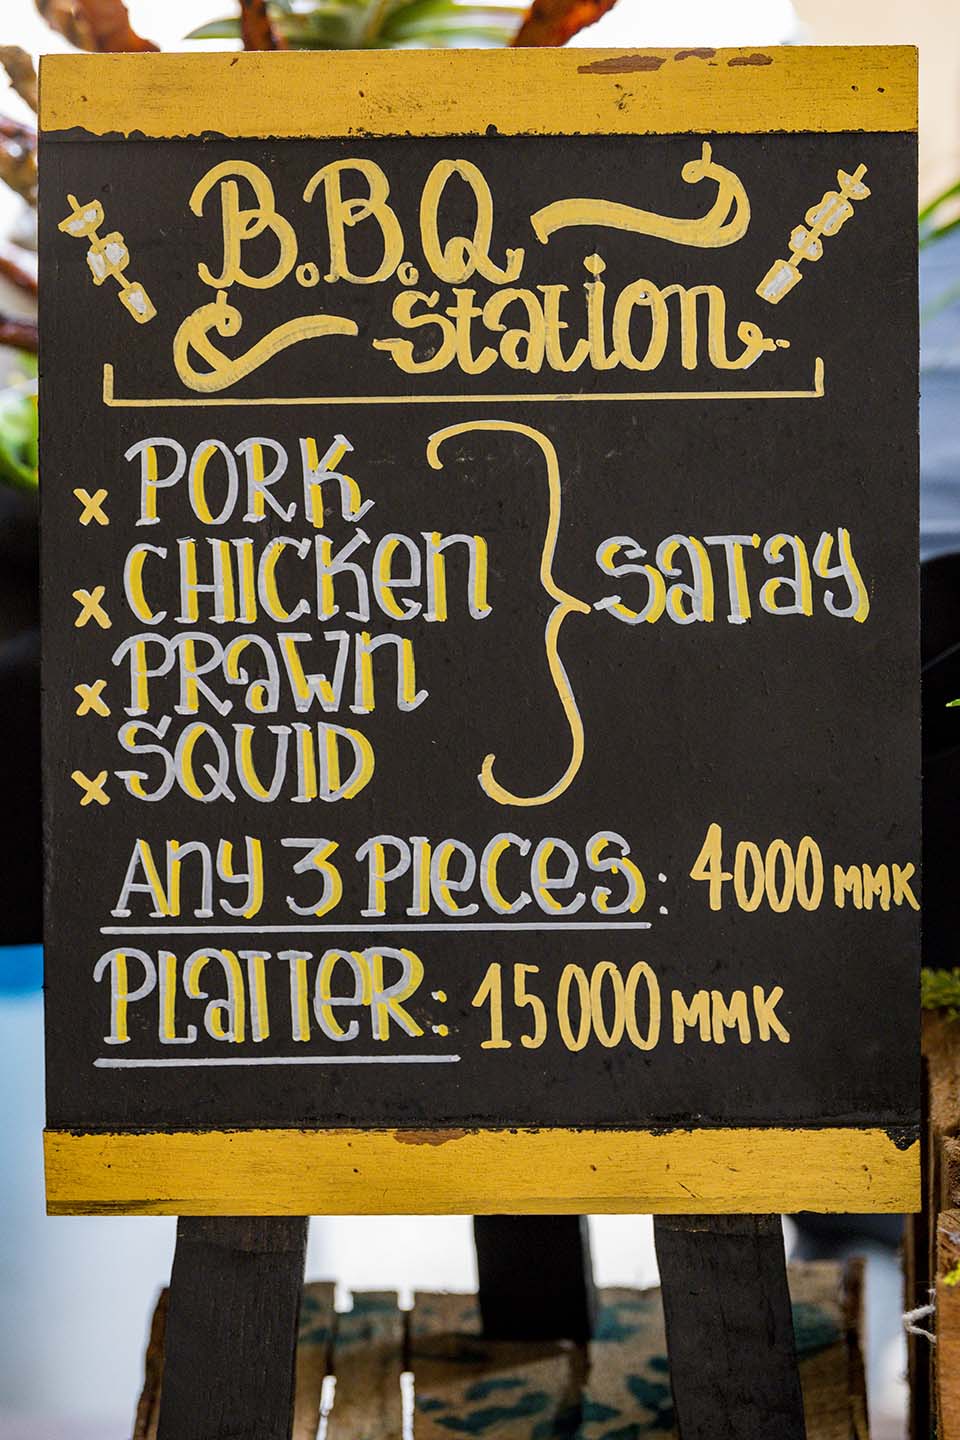 B.B.Q
Station
x PORK
x CHICKEN
x PRAWN
x SQUID
SATAY
ANY 3 PIECES: 4000 MMK
PLATTER: 15000 MMK